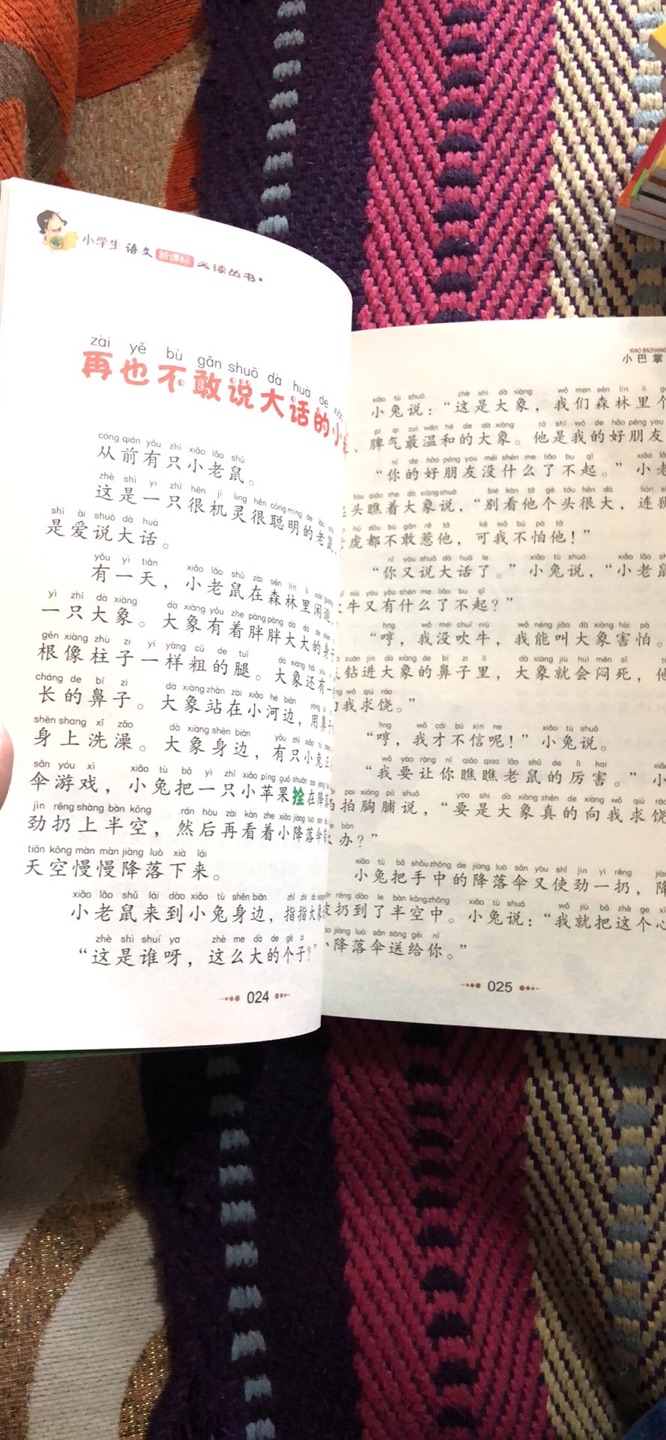 小学生语文新课标必读丛书
zài yě bù gǎn shuō dà huà de
再也不敢说大话的小
cóng qián yǒu zhī xiǎo lǎo shǔ
从前有只小老鼠。
zhè shì yì zhī hěn jī líng hěn cōng míng de lǎo shǔ
这是一只很机灵很聪明的老鼠，
shì ài shuō dà huà
是爱说大话。
yǒu yì tiān xiǎo lǎo shǔ zài sēn lín lǐ xián guàng
有一天，小老鼠在森林里闲逛，
yì zhī dà xiàng dà xiàng yǒu zhe pàng pàng dà dà de shēn
一只大象。大象有着胖胖大大的身子
gēn xiàng zhù zi yí yàng cū de tuǐ dà xiàng hái yǒu
根像柱子一样粗的腿。大象还有一
cháng de bí zi dà xiàng zhàn zài xiǎo hé biān yòng bí
长的鼻子。大象站在小河边，用鼻
shēn shang xǐ zǎo dà xiàng shēn biān yǒu zhī xiǎo tù
身上洗澡。大象身边，有只小兔
sǎn yóu xì xiǎo tù bǎ yì zhī xiǎo píng guǒ shuān zài
伞游戏，小兔把一只小苹果拴在降落
jìn rēng shàng bàn kōng rán hòu zài kàn zhe xiǎo jiàng luò sǎn
劲扔上半空，然后再看着小降落伞
tiān kōng màn màn jiàng luò xià lái
天空慢慢降落下来。
xiǎo lǎo shǔ lái dào xiǎo tù shēn biān zhǐ zhǐ dà
小老鼠来到小兔身边，指指大
zhè shì shuí ya zhè me dà de gè zi
“这是谁呀，这么大的个子？”
024
XIAO BAZHANG
小巴掌
xiǎo tù shuō zhè shì dà xiàng wǒ men sēn lín lǐ gè
小兔说：“这是大象，我们森林里个
pí qi zuì wēn hé de dà xiàng tā shì wǒ de hǎo péng you
、脾气最温和的大象。他是我的好朋友
nǐ de hǎo péng you méi shén me liǎo bu qǐ xiǎo lǎo
“你的好朋友没什么了不起。”小老
tóu qiáo zhe dà xiàng shuō bié kàn tā gè tóu hěn dà lián shī
起头瞧着大象说，“别看他个头很大，连狮
hǔ dōu bù gǎn rě tā kě wǒ bú pà tā
虎都不敢惹他，可我不怕他！”
nǐ yòu shuō dà huà le xiǎo tù shuō xiǎo lǎo shǔ
“你又说大话了。”小兔说，“小老鼠
niú yòu yǒu shén me liǎo bu qǐ
牛又有什么了不起？”
hng wǒ méi chuī niú wǒ néng jiào dà xiàng hài pà
“哼，我没吹牛，我能叫大象害怕。
zuān jìn dà xiàng de bí zi lǐ dà xiàng jiù huì mēn sǐ tā
钻进大象的鼻子里，大象就会闷死，他
wǒ qiú ráo
向我求饶。”
hng wǒ cái bú xìn ne xiǎo tù shuō
“哼，我才不信呢！”小兔说。
wǒ yào ràng nǐ qiáo qiao lǎo shǔ de lì hai xiǎo
“我要让你瞧瞧老鼠的厉害。”小
pāi xiōng pú shuō yào shi dà xiàng zhēn de xiàng wǒ qiú ráo
拍拍胸脯说，“要是大象真的向我求饶
bàn
办？”
xiǎo tù bǎ shǒu zhōng de jiàng luò sǎn yòu shǐ jìn yì rēng jiàng
小兔把手中的降落伞又使劲一扔，降
rēng dào le bàn kōng zhōng xiǎo tù shuō wǒ jiù bǎ zhè ge xīn
被扔到了半空中。小兔说：“我就把这个心
jiàng luò sǎn sòng gěi nǐ
小降落伞送给你。”
025